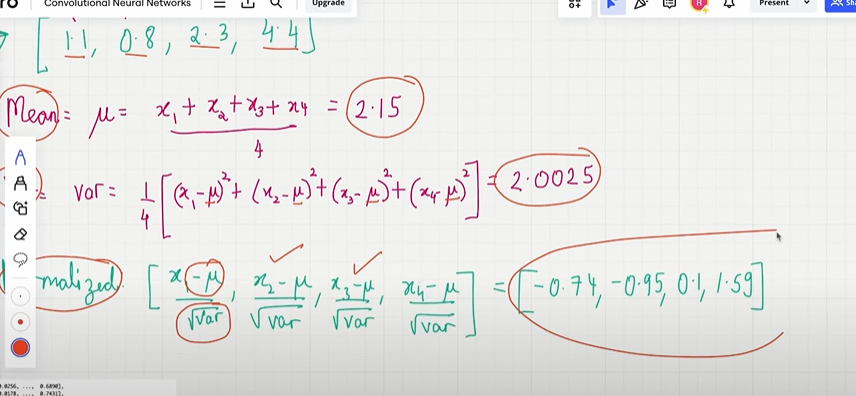 Convolutional Neural Networks
Upgrade
Present
[1.1, 0.8, 2.3, 4.4]
Mean = μ = x₁ + x₂ + x₃ + x₄ / 4 = 2.15
var = 1/4 [(x₁-μ)² + (x₂-μ)² + (x₃-μ)² + (x₄-μ)²] = 2.0025
malized [x₁-μ/√var, x₂-μ/√var, x₃-μ/√var, x₄-μ/√var] = [-0.74, -0.95, 0.1, 1.59]
.0256, ..., 0.6890],
.0178, ..., 0.7431],